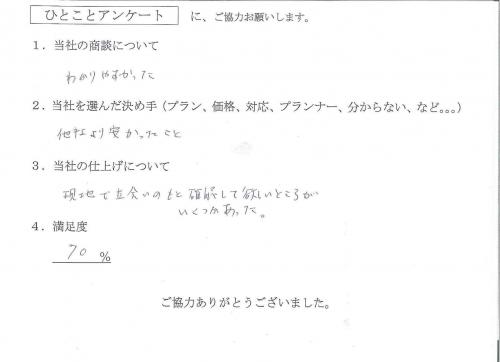 ひとことアンケート に、ご協力お願いします。
1．当社の商談について
わかりやすかった
2．当社を選んだ決め手（プラン、価格、対応、プランナー、分からない、など。。。）
他社より安かったこと
3．当社の仕上げについて
現地で立会いのもと確認して欲しいところが
いくつかあった。
4．満足度
70 %
ご協力ありがとうございました。